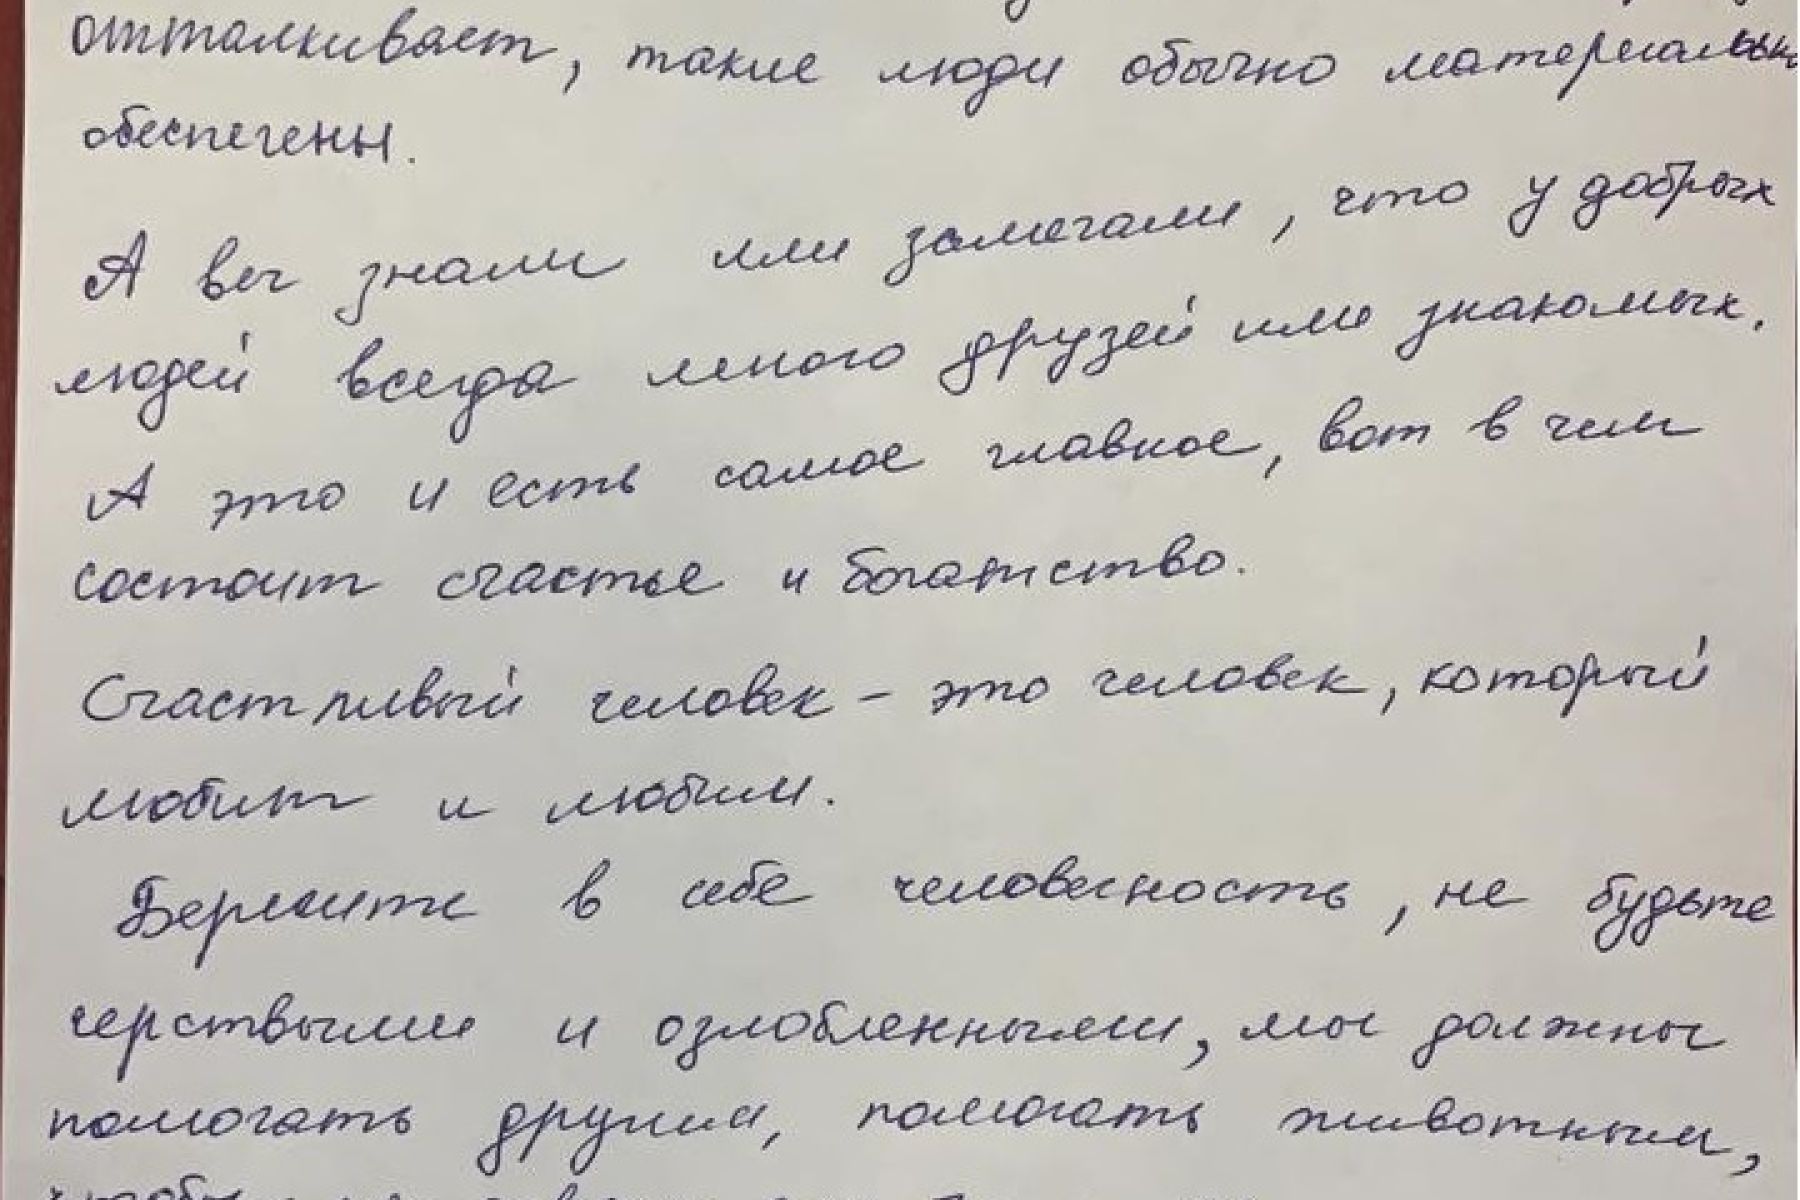 отталкивает, такие люди обычно материально
обеспечены.
А вы знали или замечали, что у добрых
людей всегда много друзей или знакомых.
А это и есть самое главное, вот в чем
состоит счастье и богатство.
Счастливый человек – это человек, который
любит и любим.
Берегите в себе человесность, не будьте
черствыми и озлобленными, мы должны
помогать другим, помогать животным,